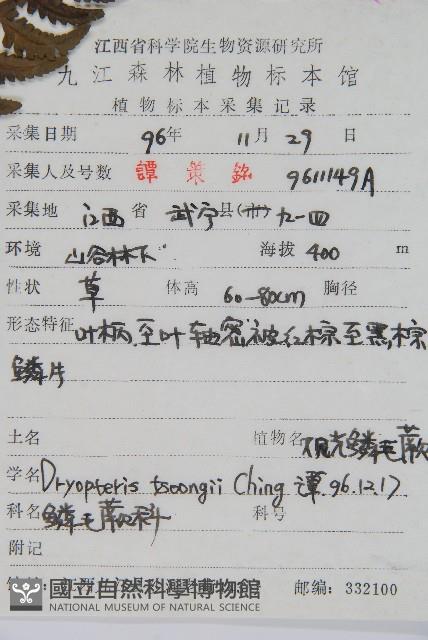 江西省科学院生物资源研究所
九江森林植物标本馆
植物标本采集记录
采集日期 96年 11月 29日
采集人及号数 譚策銘 9611149A
采集地 江西省 武宁县(市) 九一四
环境 山谷林下 海拔 400 m
性状 草 体高 60-80cm 胸径
形态特征 叶柄至叶轴密被红棕至黑棕
鳞片
土名 植物名 观光鳞毛蕨
学名 Dryopteris tsoongii Ching 譚 96.12.17
科名 鳞毛蕨科 科号
附记
邮编: 332100
國立自然科學博物館
NATIONAL MUSEUM OF NATURAL SCIENCE